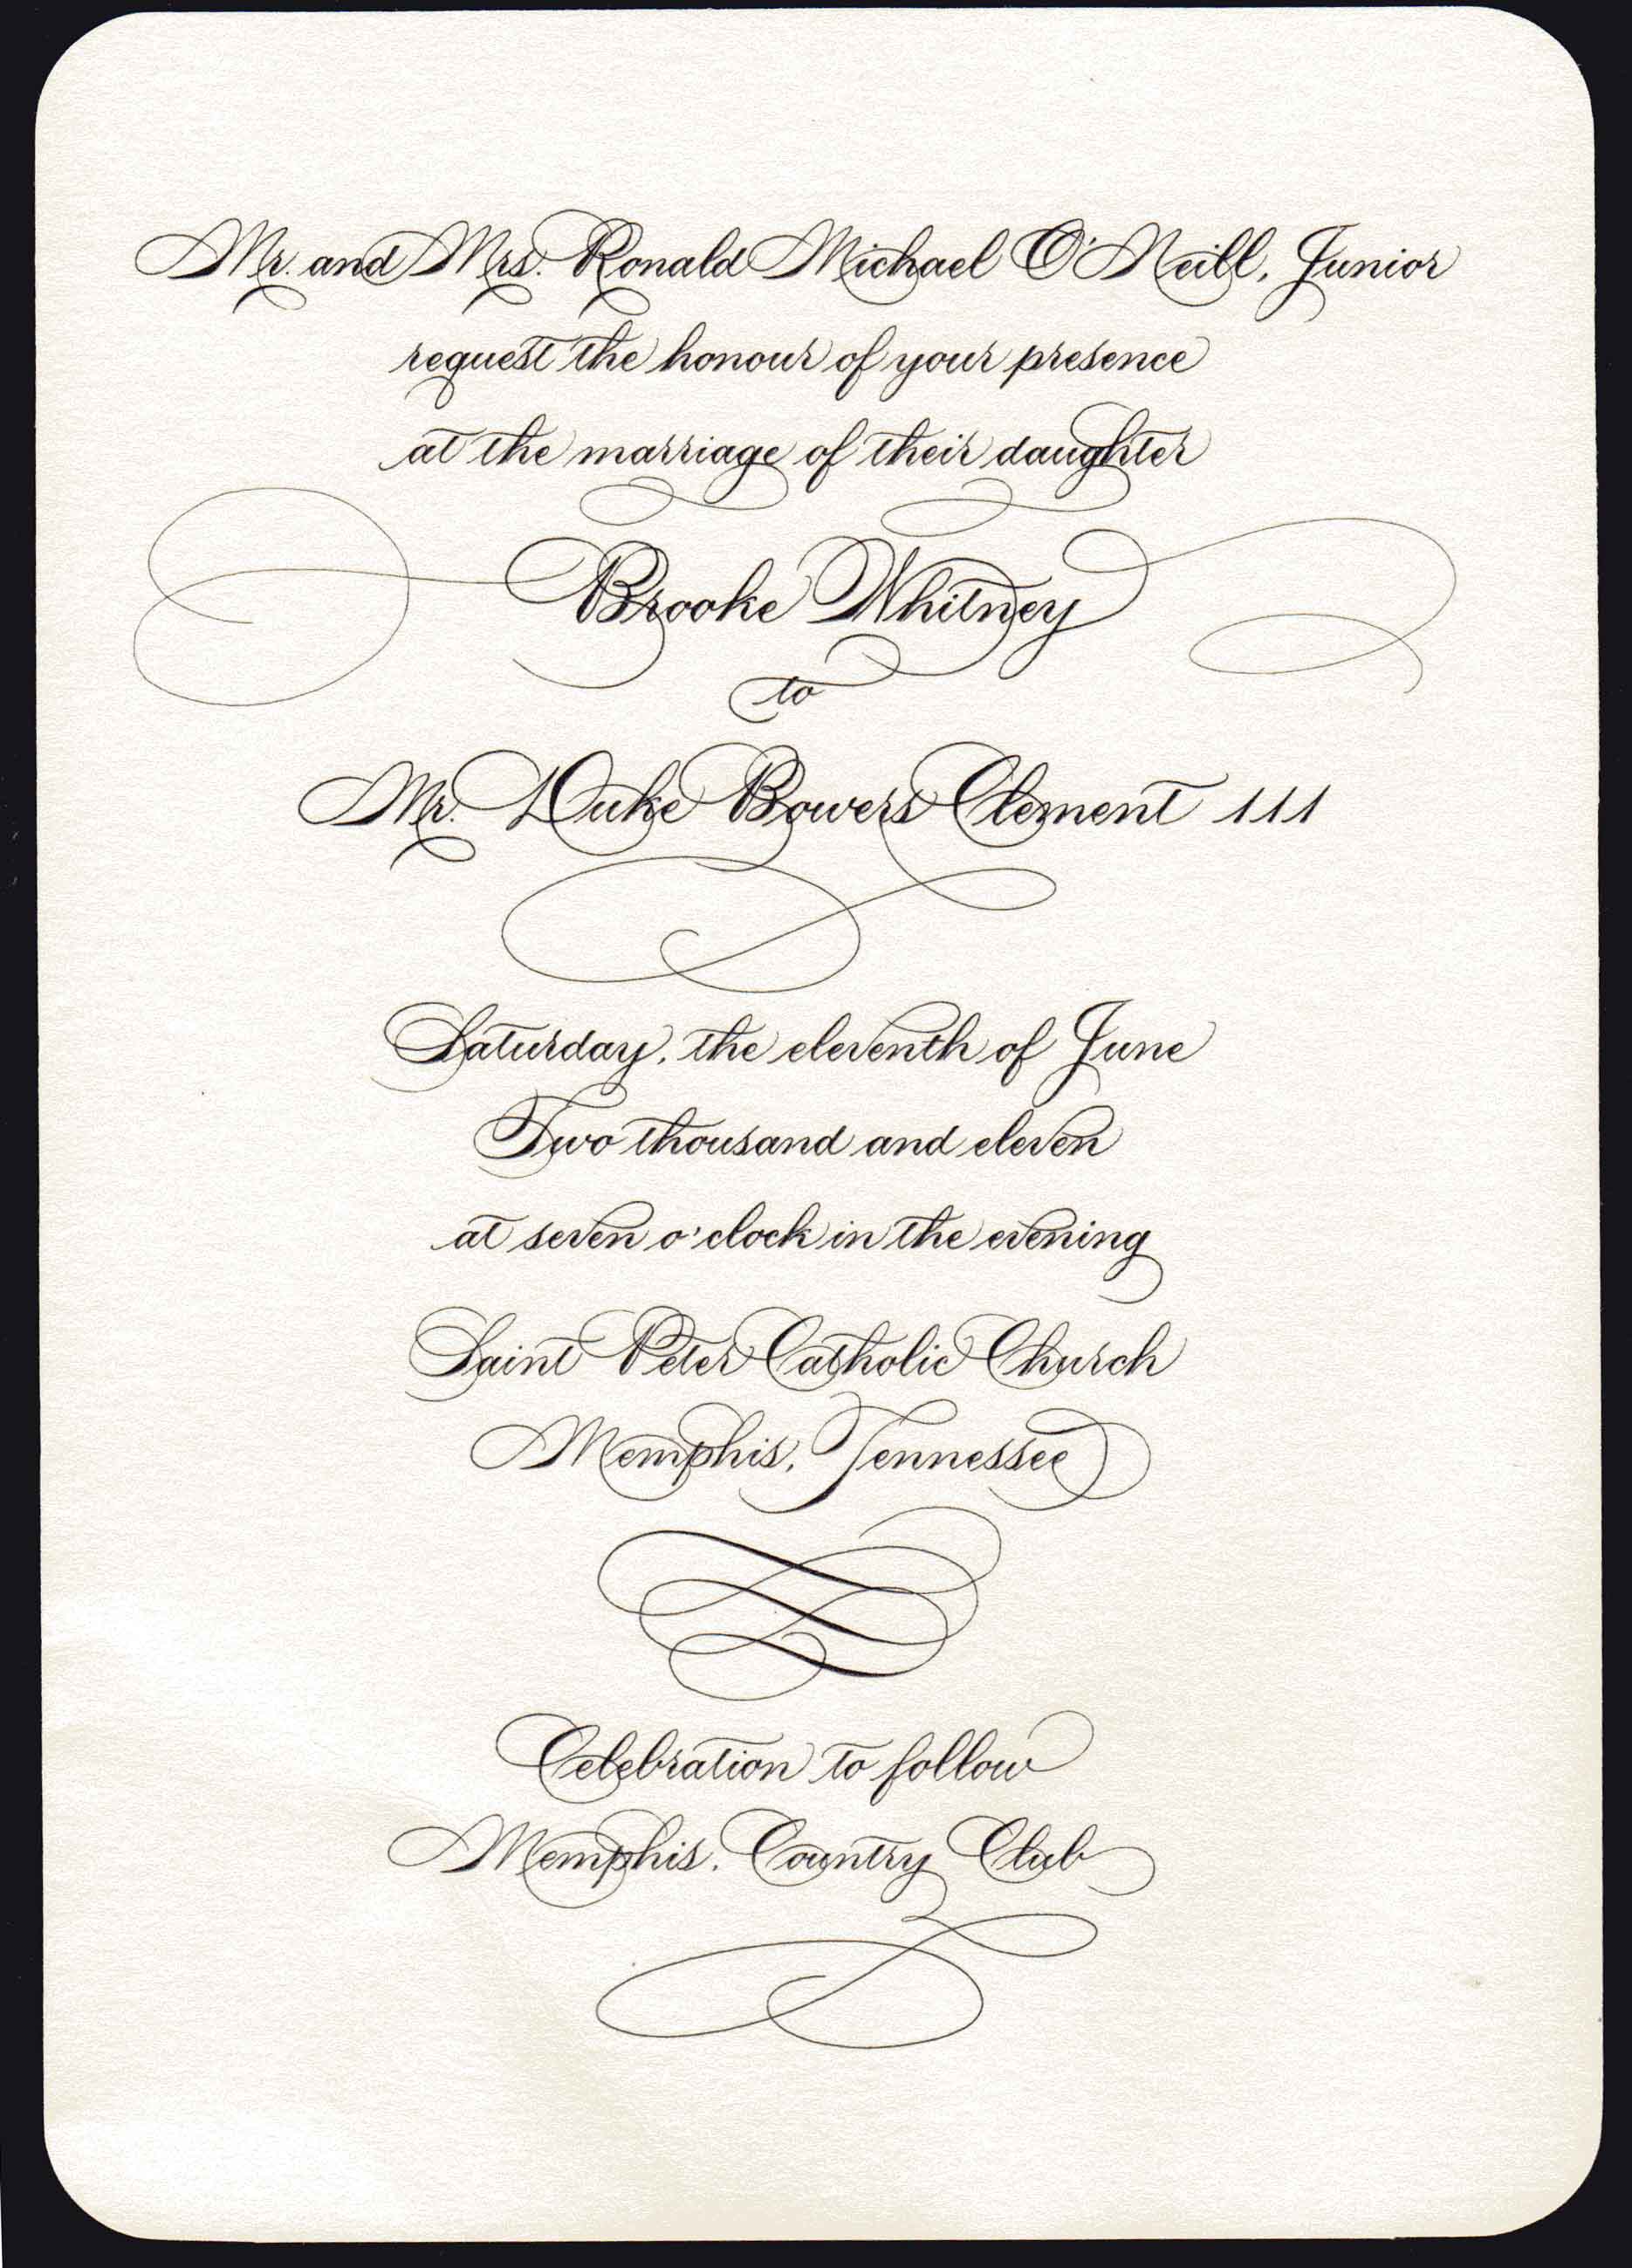 Mr. and Mrs. Ronald Michael O'Neill, Junior
request the honour of your presence
at the marriage of their daughter
Brooke Whitney
to
Mr. Duke Bowers Clement 111
Saturday, the eleventh of June
Two thousand and eleven
at seven o'clock in the evening
Saint Peter Catholic Church
Memphis, Tennessee
Celebration to follow
Memphis, Country Club